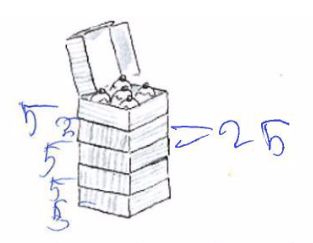 5
= 25
5
5
5